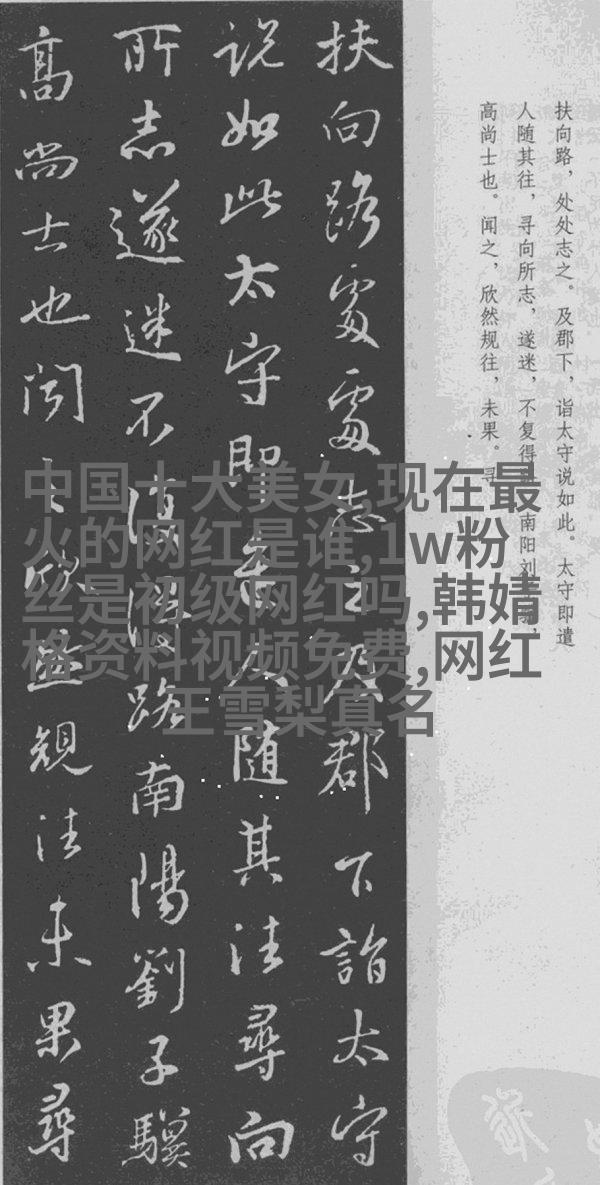 扶向路，处处志之。及郡下，诣太守说如此。太守即遣
人随其往，寻向所志，遂迷，不复得南阳刘
高尚士也。闻之，欣然规往，未果。寻
扶向路處處志之及郡下詣太守
说如此太守即遣人随其往尋向
所志遂迷不復得路南陽劉子驥
高尚士也闻之欣然規往未果尋
中国十大美女,现在最
火的网红是谁,1w粉
丝是初级网红吗,韩婧
格资料视频免费,网红
王雪梨真名